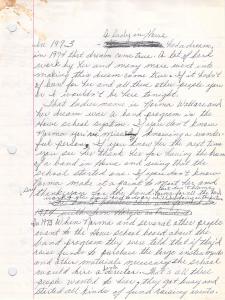 A Lady in Howe
In 1973 had a dream,
in 1974 that dream come true. A lot of hard
work by her and many more went into
making this dream come true. If it hadn't
of been for her and all these other people you
or I wouldn't be here tonight.
That ladies name is Norma Wallace and
her dream was a band program in the
Howe school system. If you don't know
Norma you are missing knowing a wonder-
ful person. If you know her the next time
you see her thank her for being the
of a band in Howe and seeing that the
school started one. If you don't know
Norma, make it a point to meet her and
thank her for the band
In 1973 when Norma and several other people
went to the Howe school board about the
band program they was told that if they'd
raise funds to purchase the large instruments
and other materials necessary the school
would hire a teacher. That's all these
people wanted to hear, they got busy and
started all kinds of fund raising events.